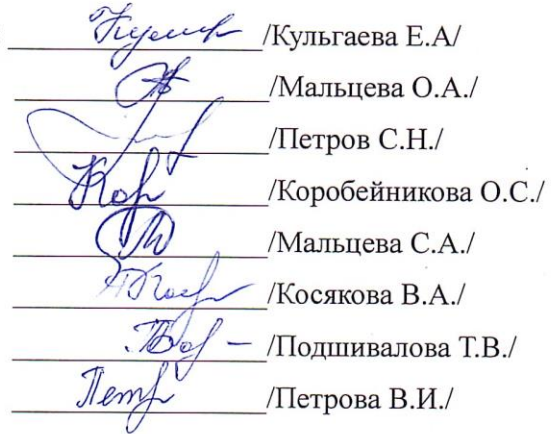 /Кульгаева Е.А/
/Мальцева О.А./
/Петров С.Н./
/Коробейникова О.С./
/Мальцева С.А./
/Косякова В.А./
/Подшивалова Т.В./
Петр /Петрова В.И./